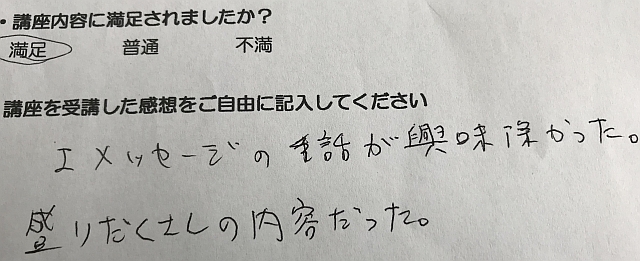 ・講座内容に満足されましたか？
満足 普通 不満
講座を受講した感想をご自由に記入してください
I メッセージの話が興味深かった。
盛りだくさんの内容だった。